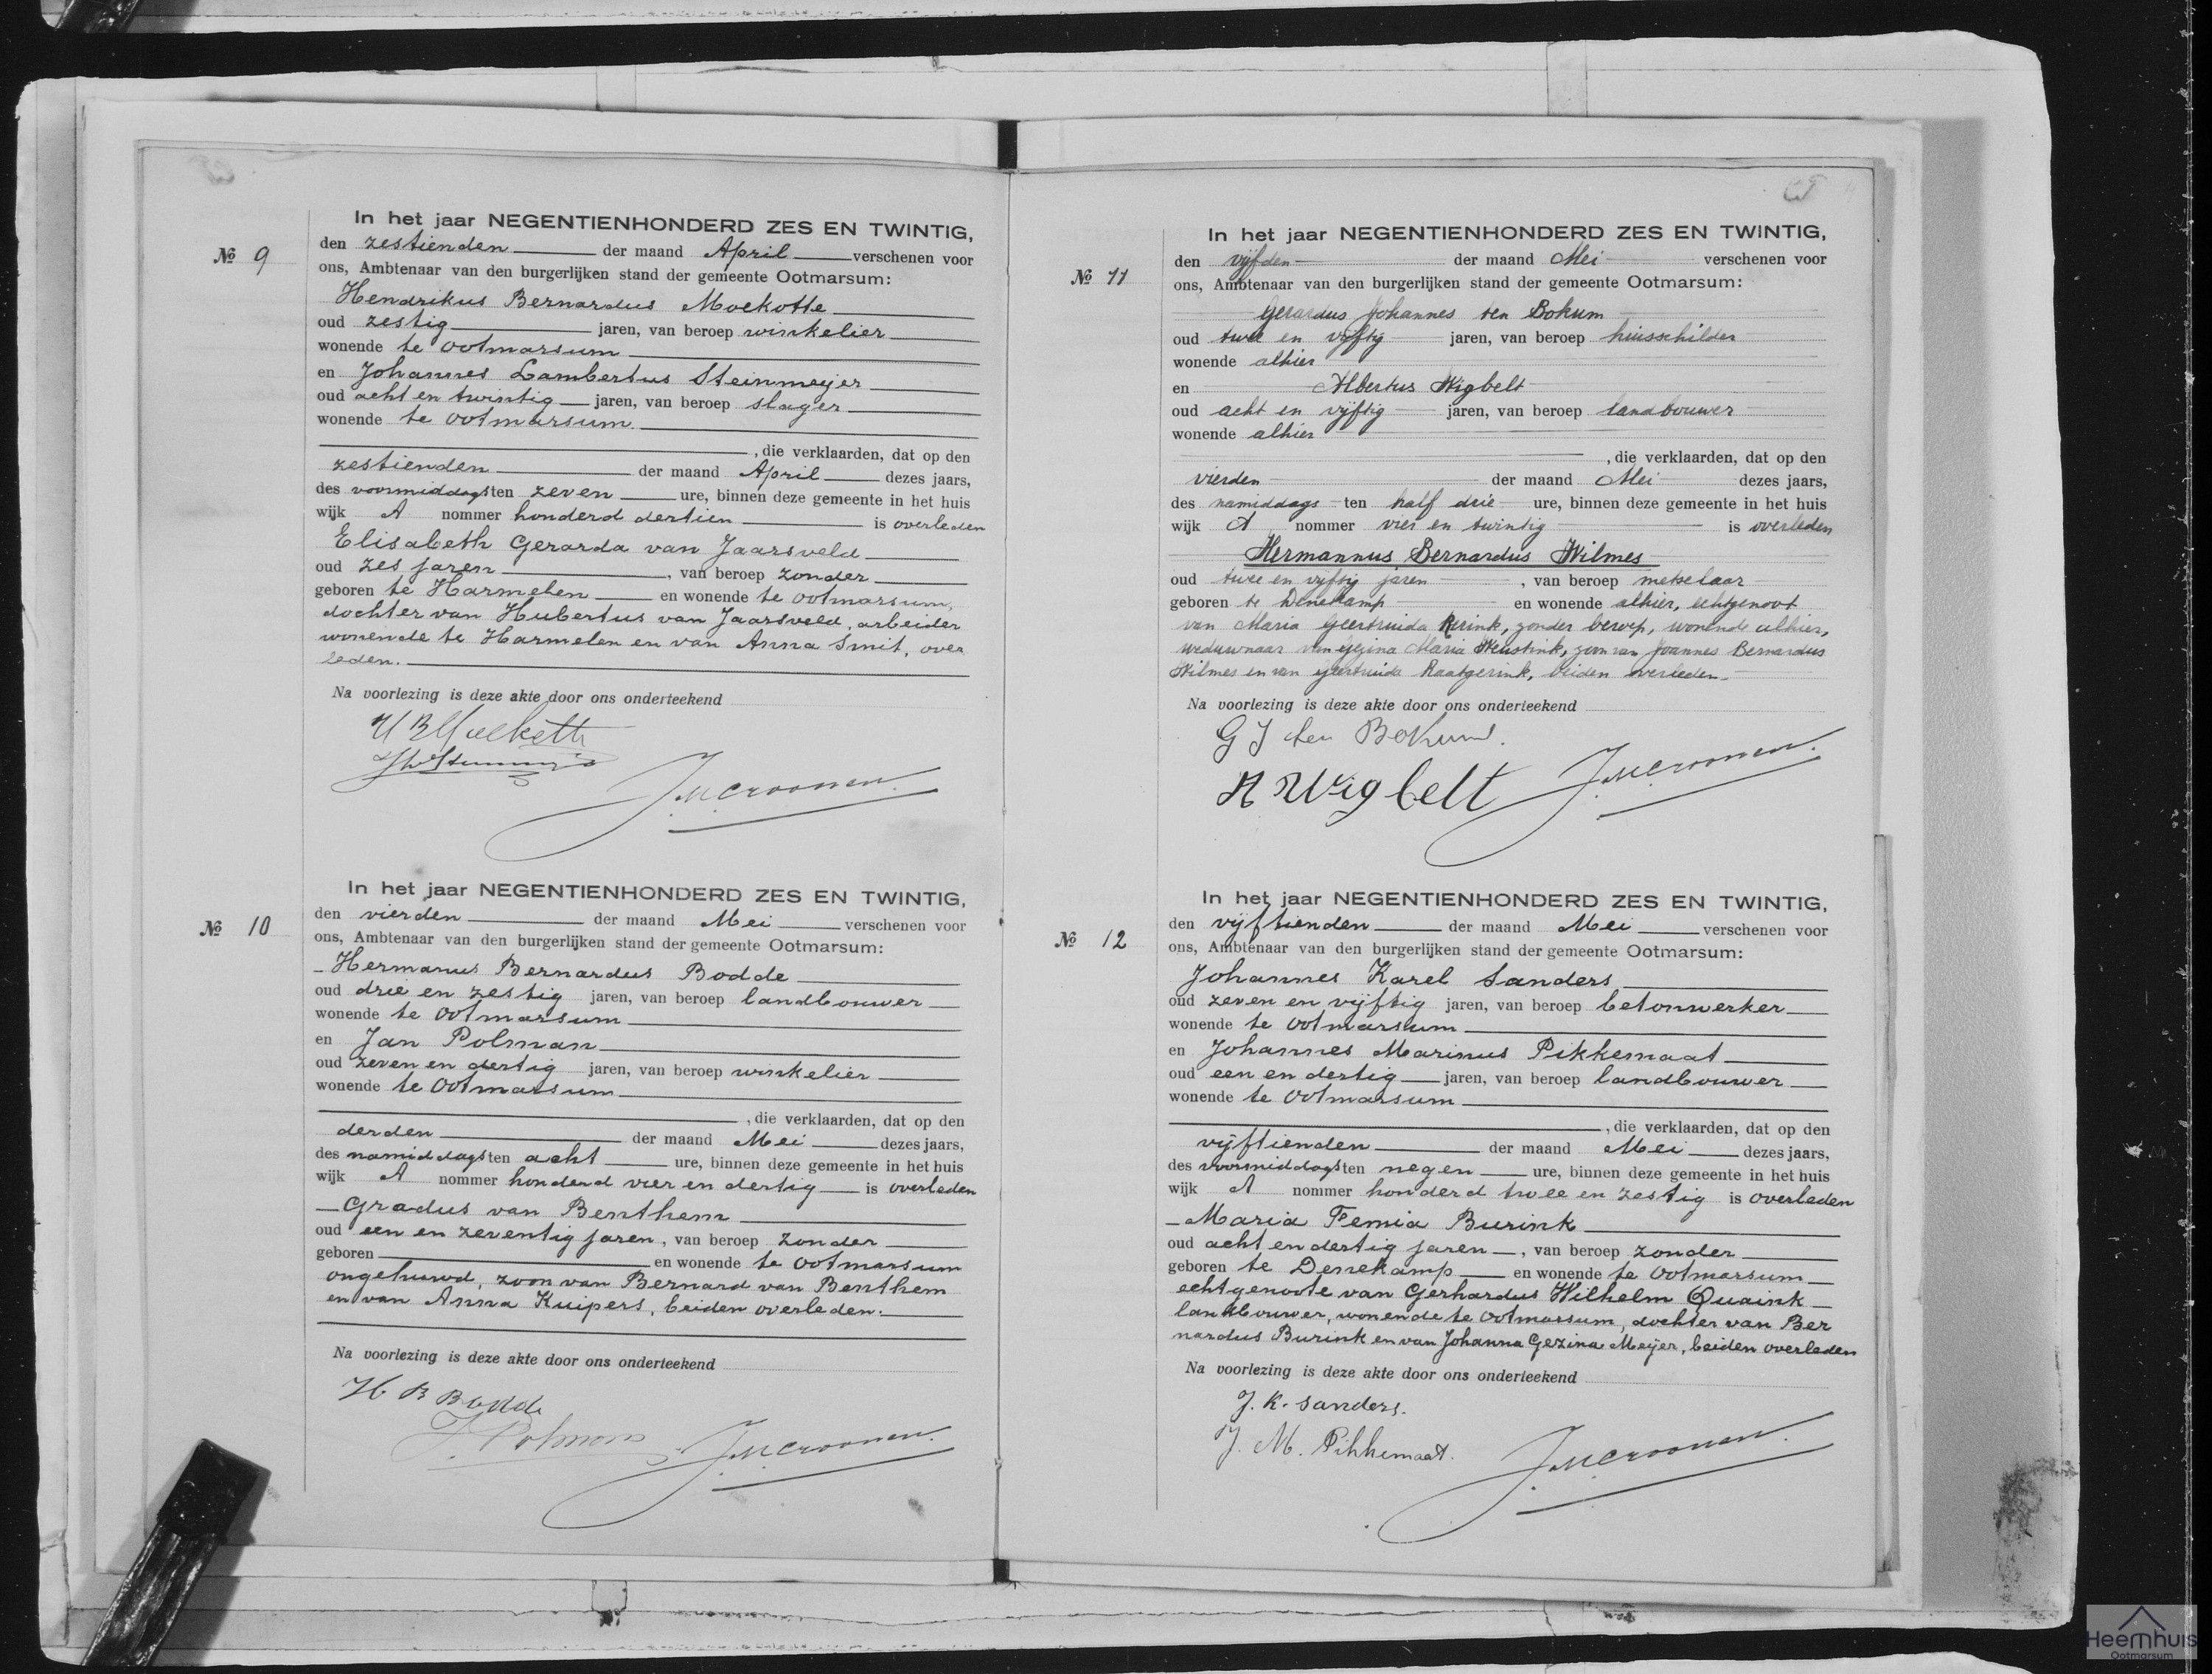 In het jaar NEGENTIENHONDERD ZES EN TWINTIG,
№ 9
den zestienden der maand April verschenen voor
ons, Ambtenaar van den burgerlijken stand der gemeente Ootmarsum:
Hendrikus Bernardus Moekotte
oud zestig jaren, van beroep winkelier
wonende te Ootmarsum
en Johannes Lambertus Steinmeijer
oud acht en twintig jaren, van beroep slager
wonende te Ootmarsum.
, die verklaarden, dat op den
zestienden der maand April dezes jaars,
des voormiddags ten zeven ure, binnen deze gemeente in het huis
wijk A nommer honderd dertien is overleden
Elisabeth Gerarda van Jaarsveld
oud zes jaren, van beroep zonder
geboren te Harmelen en wonende te Ootmarsum,
dochter van Hubertus van Jaarsveld, arbeider
wonende te Harmelen en van Anna Smit, over
leden.
Na voorlezing is deze akte door ons onderteekend
H B Moekotte
J.M.Croonen.
In het jaar NEGENTIENHONDERD ZES EN TWINTIG,
№ 10
den vierden der maand Mei verschenen voor
ons, Ambtenaar van den burgerlijken stand der gemeente Ootmarsum:
Hermanus Bernardus Bodde
oud drie en zestig jaren, van beroep landbouwer
wonende te Ootmarsum
en Jan Polman
oud zeven en dertig jaren, van beroep winkelier
wonende te Ootmarsum
, die verklaarden, dat op den
derden der maand Mei dezes jaars,
des namiddags ten acht ure, binnen deze gemeente in het huis
wijk A nommer honderd vier en dertig is overleden
Gradus van Benthem
oud een en zeventig jaren, van beroep zonder
geboren en wonende te Ootmarsum
ongehuwd, zoon van Bernard van Benthem
en van Anna Kuipers, beiden overleden.
Na voorlezing is deze akte door ons onderteekend
H B Bodde
J. Polman
J.M.Croonen.
In het jaar NEGENTIENHONDERD ZES EN TWINTIG,
№ 11
den vijfden der maand Mei verschenen voor
ons, Ambtenaar van den burgerlijken stand der gemeente Ootmarsum:
Gerardus Johannes ten Bokum
oud twee en vijftig jaren, van beroep huisschilder
wonende alhier
en Albertus Wigbelt
oud acht en vijftig jaren, van beroep landbouwer
wonende alhier
, die verklaarden, dat op den
vierden der maand Mei dezes jaars,
des namiddags ten half drie ure, binnen deze gemeente in het huis
wijk A nommer vier en twintig is overleden
Hermannus Bernardus Wilmes
oud twee en vijftig jaren, van beroep metselaar
geboren te Denekamp en wonende alhier, echtgenoot
van Maria Geertruida Rerink, zonder beroep, wonende alhier,
weduwnaar van Gezina Maria Heustink, zoon van Joannes Bernardus
Wilmes en van Geertruida Raatgerink, beiden overleden.
Na voorlezing is deze akte door ons onderteekend
G J ten Bokum.
A Wigbelt
J.M.Croonen.
In het jaar NEGENTIENHONDERD ZES EN TWINTIG,
№ 12
den vijftienden der maand Mei verschenen voor
ons, Ambtenaar van den burgerlijken stand der gemeente Ootmarsum:
Johannes Karel Sanders
oud zeven en vijftig jaren, van beroep betonwerker
wonende te Ootmarsum
en Johannes Marinus Pikkemaat
oud een en dertig jaren, van beroep landbouwer
wonende te Ootmarsum
, die verklaarden, dat op den
vijftienden der maand Mei dezes jaars,
des voormiddags ten negen ure, binnen deze gemeente in het huis
wijk A nommer honderd twee en zestig is overleden
Maria Femia Burink
oud acht en dertig jaren, van beroep zonder
geboren te Denekamp en wonende te Ootmarsum
echtgenoote van Gerhardus Wilhelm Quaink
landbouwer, wonende te Ootmarsum, dochter van Ber
nardus Burink en van Johanna Gezina Meijer, beiden overleden
Na voorlezing is deze akte door ons onderteekend
J. K. Sanders.
J. M. Pikkemaat.
J.M.Croonen.
Heemhuis
Ootmarsum